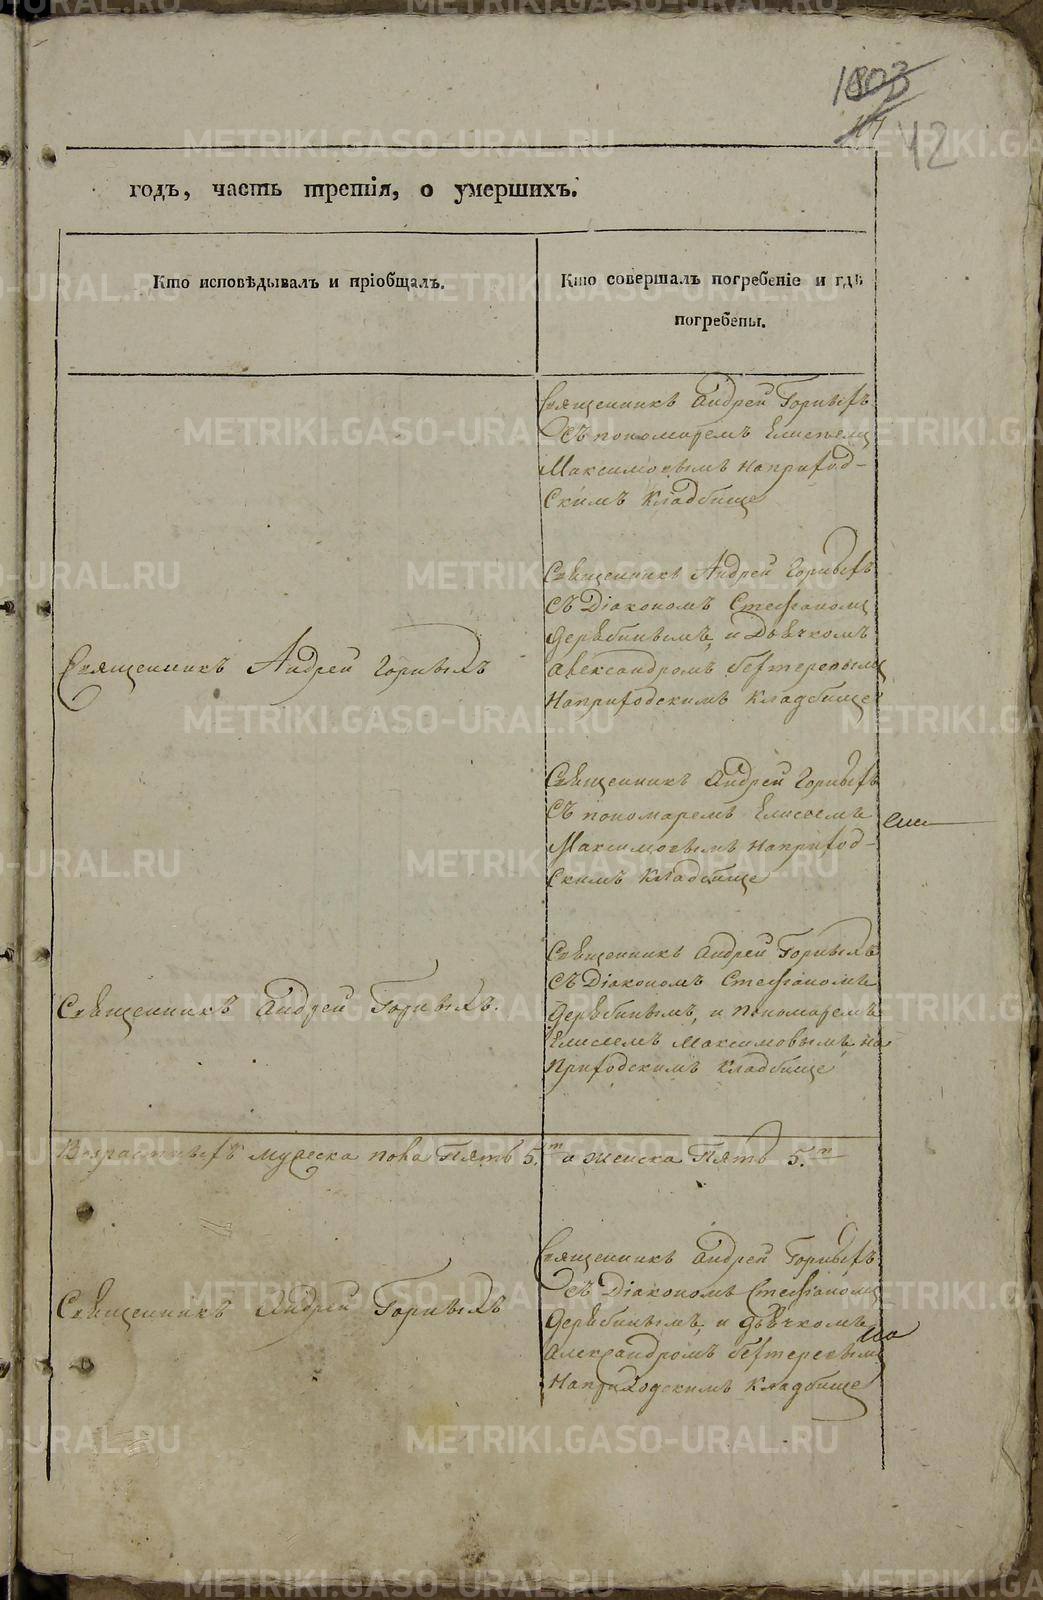 1803
42
годъ, часть третія, о умершихъ.
Кто исповѣдывалъ и пріобщалъ.
Кто совершалъ погребеніе и гдѣ
погребены.
Священникъ Андрей Горныхъ
съ пономаремъ Елисеемъ
Максимовымъ наприход-
скимъ кладбище
Священникъ Андрей Горныхъ
Священникъ Андрей Горныхъ
съ Діакономъ Стефаномъ
Дерябинымъ, и Дьячкомъ
александромъ бехтеревымъ
наприходскимъ кладбище
Священникъ Андрей Горныхъ
съ пономаремъ Елисеемъ
Максимовымъ наприход-
скимъ кладбище
Священникъ Андрей Горныхъ.
Священникъ Андрей Горныхъ
съ Діакономъ Стефаномъ
Дерябинымъ, и пономаремъ
Елисеемъ Максимовымъ на
приходскимъ кладбище
Возрастныхъ мужеска пола пять 5. и женска пять 5.
Священникъ Андрей Горныхъ
Священникъ Андрей Горныхъ
съ Діакономъ Стефаномъ
Дерябинымъ, и дьячкомъ
Александромъ бехтеревымъ
наприходскимъ кладбище
METRIKI.GASO-URAL.RU